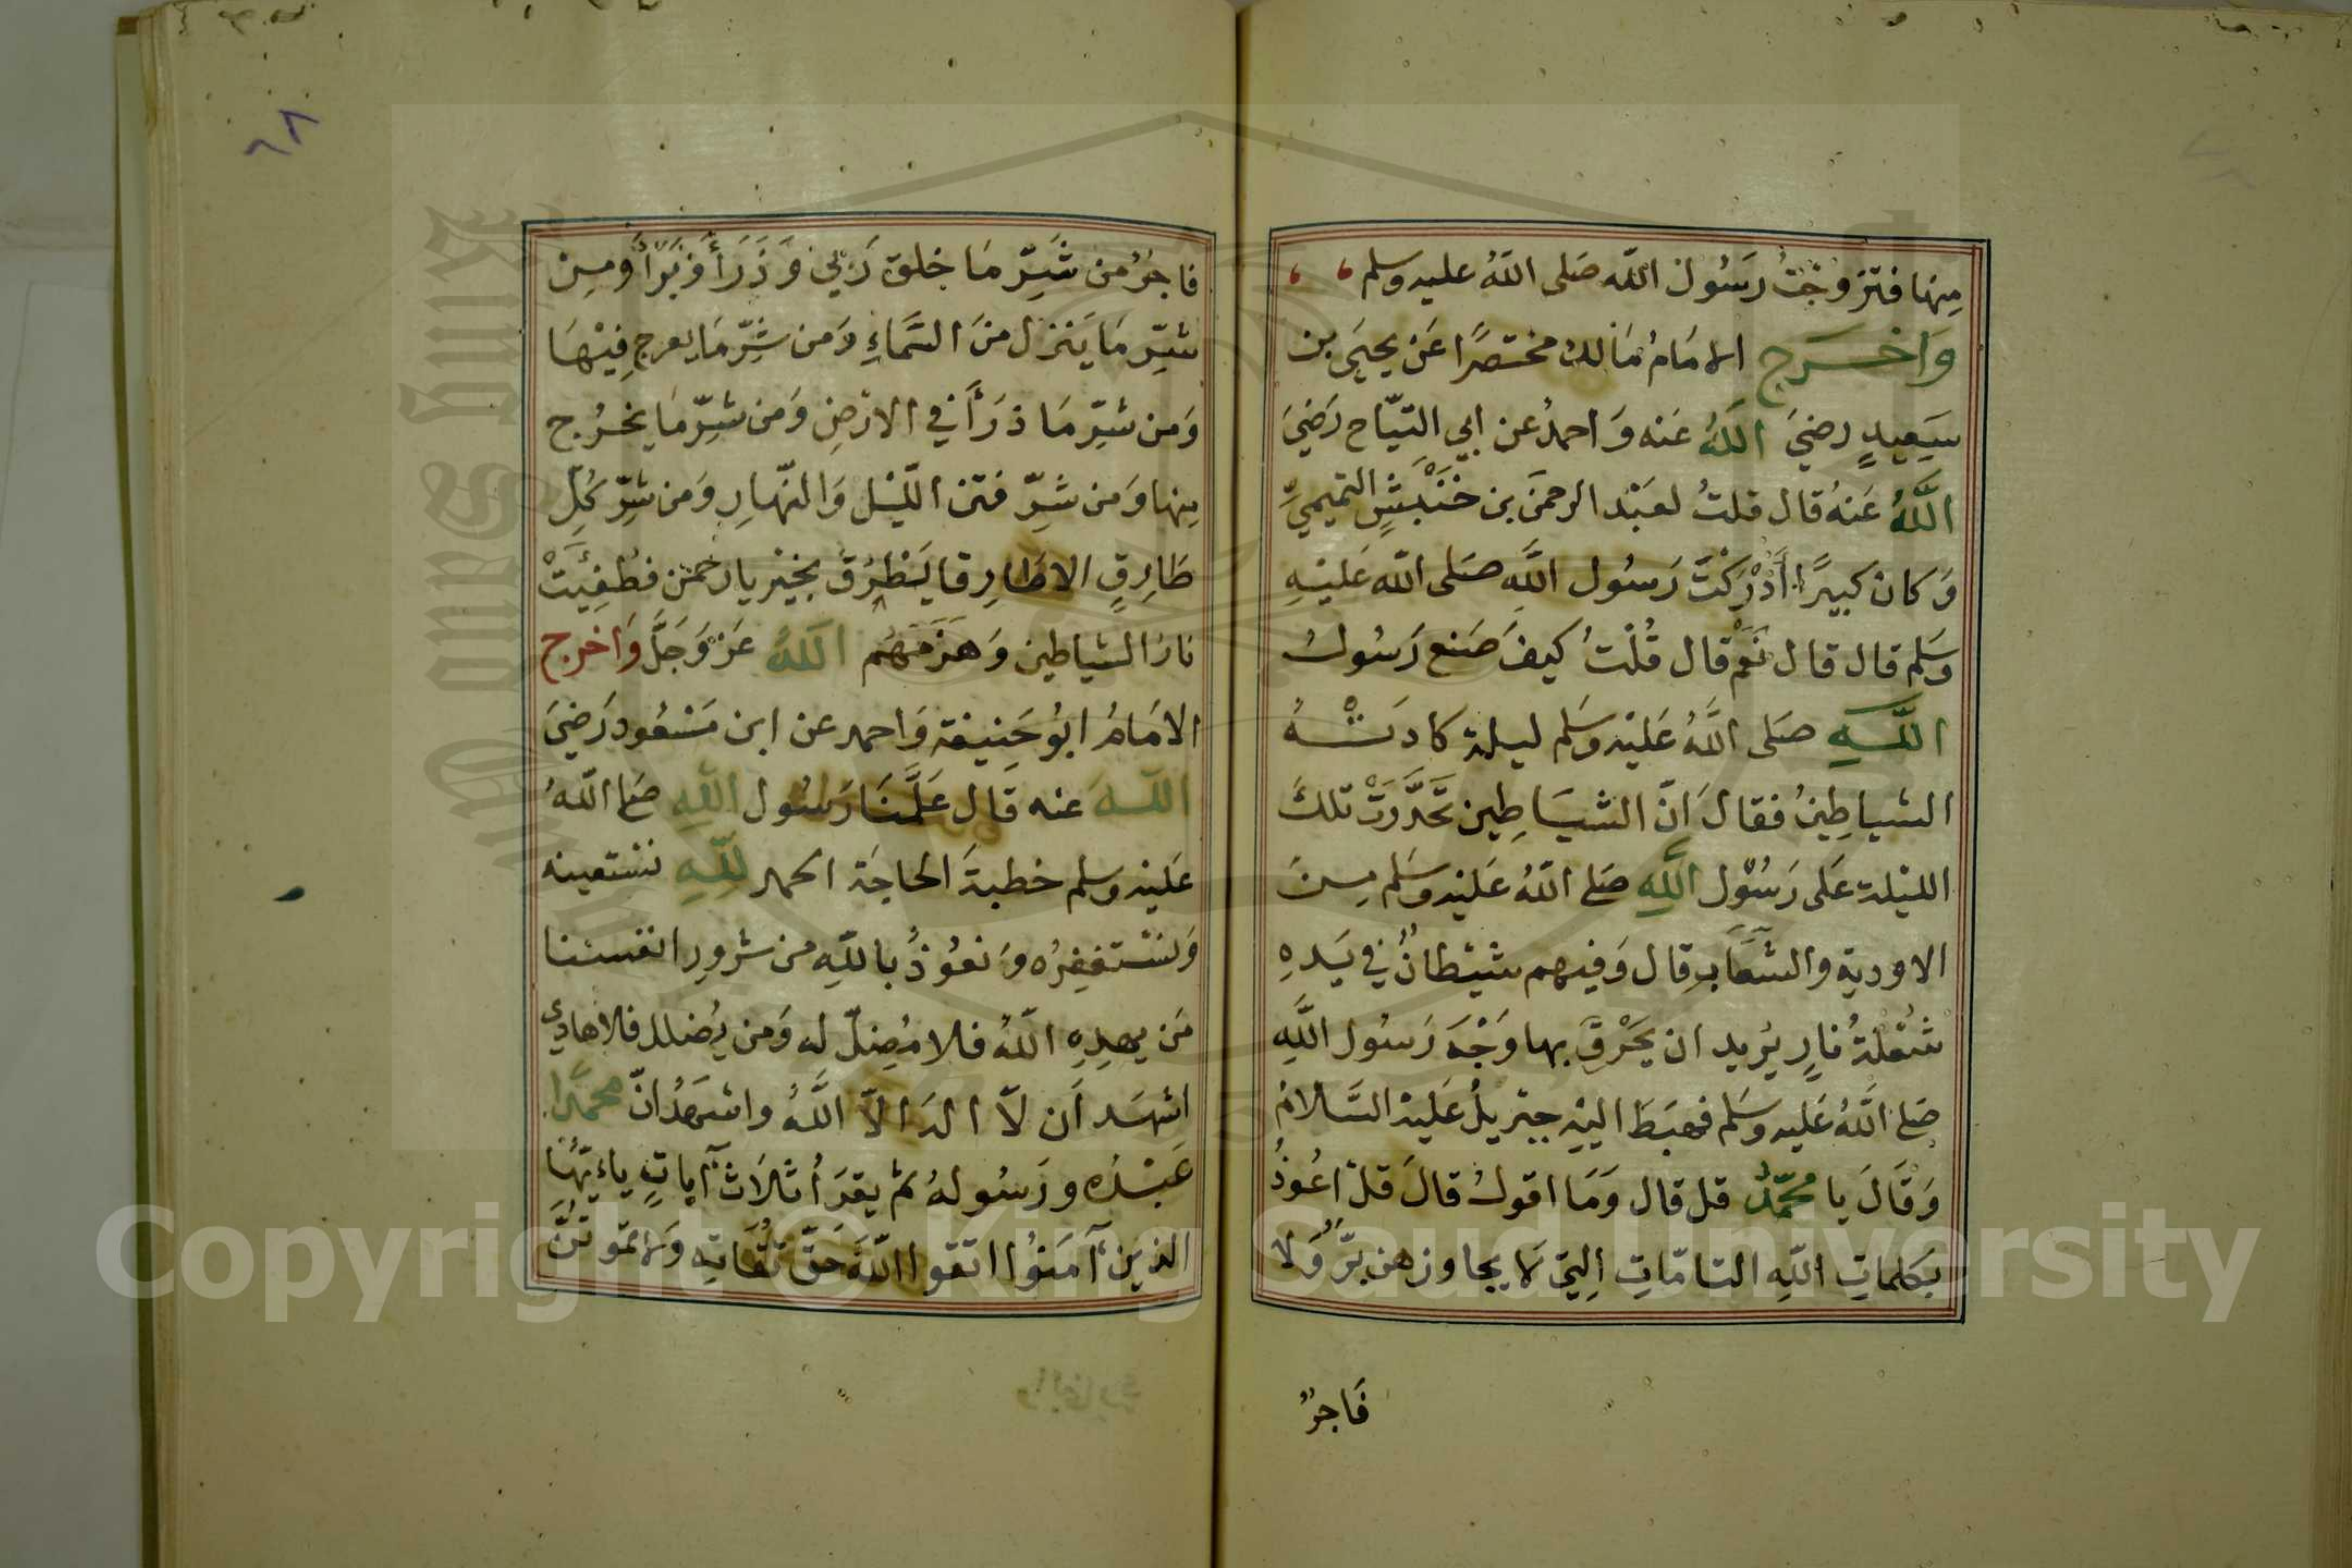 منها فتزوجتُ رَسُول الله صَلى اللهُ عليه وسلم
وَاخـرَج الامَامُ مَالك مختصرًا عَن يحيَى بن
سَعِيدٍ رضيَ اللهُ عَنه وَاحمدُ عن ابي التيّاح رَضيَ
اللهُ عَنهُ قال قلتُ لعَبْد الرحمَن بن خَنْبَشٍ التميميّ
وَكان كبيرًا أَدْرَكْتَ رَسُول اللهِ صَلى الله عَليْهِ
وسَلم قال قال نَعَمْ قال قُلْتُ كيفَ صَنع رَسُولُ
اللهِ صَلى اللهُ عَليْه وسَلم ليلة كادَتْهُ
الشياطِينُ فقالَ انّ الشيَاطِين تَحَدَّرَتْ تلكَ
الليْلة عَلى رَسُوْل اللهِ صَلى اللهُ عَليْه وسَلم مِنَ
الاودية والشعَابِ قال وَفيهم شيْطانٌ في يَدهِ
شُعْلةُ نَارٍ يُريد ان يَحْرقَ بها وَجْهَ رَسُول اللهِ
صَلى اللهُ عَليه وسَلم فهبَطَ اليْهِ جبْريلُ عَليْهِ السَّلامُ
وَقَالَ يا محمّدُ قل قال وَمَا اقولُ قالَ قلْ اعُوذُ
بكلماتِ اللهِ التامّاتِ التِي لا يجاوزهن بَرٌّ وَلا
فَاجرٌ
٦٨
فاجرٌ من شَرِّ مَا خلق رَبّي وَذَرَأَ وَبَرَأَ ومِن
شرِّ مَا يَنزل منَ السَّمَاءِ وَمن شَرِّ مَا يعرج فِيْهَا
وَمن شرِّ مَا ذرَأَ في الارْضِ وَمن شرِّ مَا يخرُج
مِنها وَمن شَرِّ فتن الليْل وَالنّهارِ وَمن شرِّ كُلِّ
طَارِقٍ الا طَارِقا يَطْرُقُ بخيْر يا رحمن فطُفِئَتْ
نارُ الشياطين وَهزَمَهُم اللهُ عَزّ وَجَلَّ وَاخرج
الامَامُ ابُو حَنِيفة وَاحمد عن ابن مَسْعُود رَضيَ
اللهُ عنه قَال عَلَّمَنَا رَسُول اللهِ صَلى اللهُ
عَليْه وسلم خطبةَ الحاجَة الحمد للهِ نستعينه
وَنسْتغفِرُه وَنعُوْذُ باللهِ من شرورِ انفسنا
مَن يهدِهِ اللهُ فلا مُضِلّ له وَمن يُضلل فلا هاديَ
اشهَد اَن لاّ الهَ الاّ اللهُ واشهَدُ انّ محمَّدًا
عَبْدُه ورَسُولهُ ثم يقرَأُ ثلاَثَ آياتٍ ياءيّهَا
الذينَ آمَنُوا اتقوا اللهَ حَقّ تُقَاتِه وَلا تمَوتُنَّ
Copyright © King Saud University